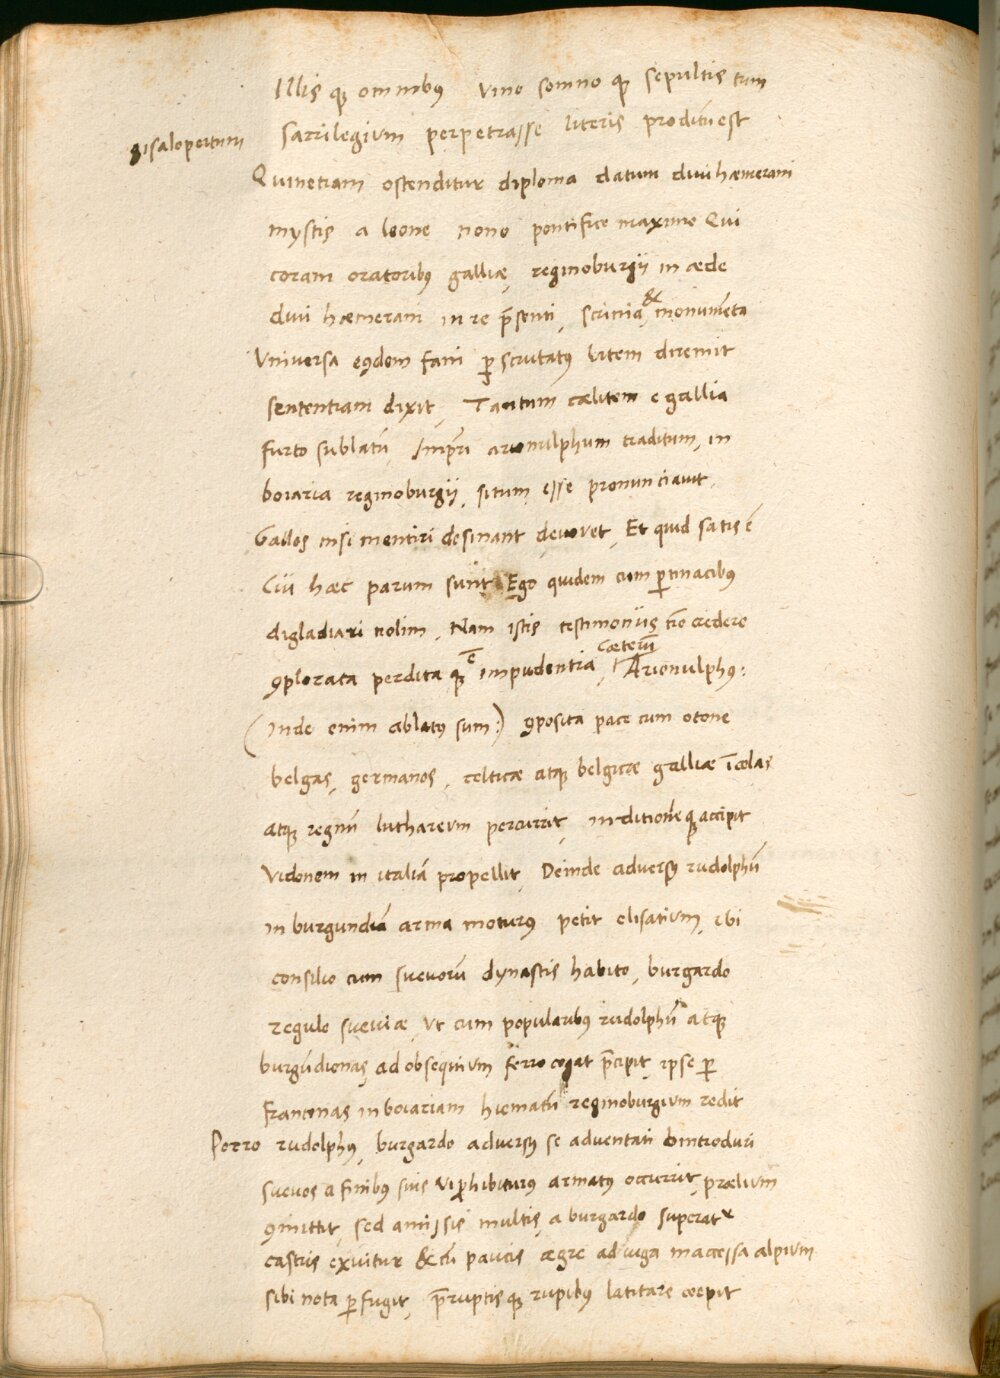 Illis qꝫ omnibꝰ vino somno qꝫ sepultis tum
gisalopertum
Sacrilegium perpetrasse literis proditū est
Quinetiam ostenditur diploma datum diui hæmerani
mystis a leone nono pontifice maximo Qui
coram oratoribꝰ galliæ, reginoburgii in æde
diui hæmerani in re p̄senti, scrinia, & monumēta
Vniversa eꝰdem fani ꝑscrutatꝰ litem diremit
sententiam dixit, Tantum cælitem e gallia
furto sublatū, Imp̄ri arionulphum traditum, in
boiaria reginoburgii, situm esse pronunciauit,
Gallos nisi mentiri desinant, deuovet, Et quid satis ē
Cū hæc parum sunt Ego quidem cum ꝑtinacibꝰ
digladiari nolim, Nam istis testimoniis nō credere
ꝯplorata perdita qꝫ ē impudentia, Cæterū Arionulphꝰ:
(inde enim ablatꝰ sum:) ꝯposita pace cum otone
belgas, germanos, celticæ atqꝫ belgicæ galliæ īcolas
atqꝫ regnū luthareum percurrit, in ditionē qꝫ accipit
Vidonem in italiā propellit, Deinde adversꝰ rudolphū
in burgundiā arma moturꝰ petit elisatium, ibi
consilio cum suevorū dynastis habito, burgardo
regulo sueuiæ, vt cum popularibꝰ rudolphū atqꝫ
burgūdionas, ad obsequium ferro cogat p̄cipit, ipse ꝑ
franconas in boiariam hiematū reginoburgium redit
Porro rudolphꝰ, burgardo adversꝰ se adventāti introduci
suevos a finibꝰ suis vi ꝓhibiturꝰ armatꝰ occurrit, prælium
ꝯmittit, sed amissis multis, a burgardo superatꝰ
castris exuitur & cū paucis ægre ad iuga inaccessa alpium
sibi nota ꝑfugit, p̄ruptis qꝫ rupibꝰ latitare coepit